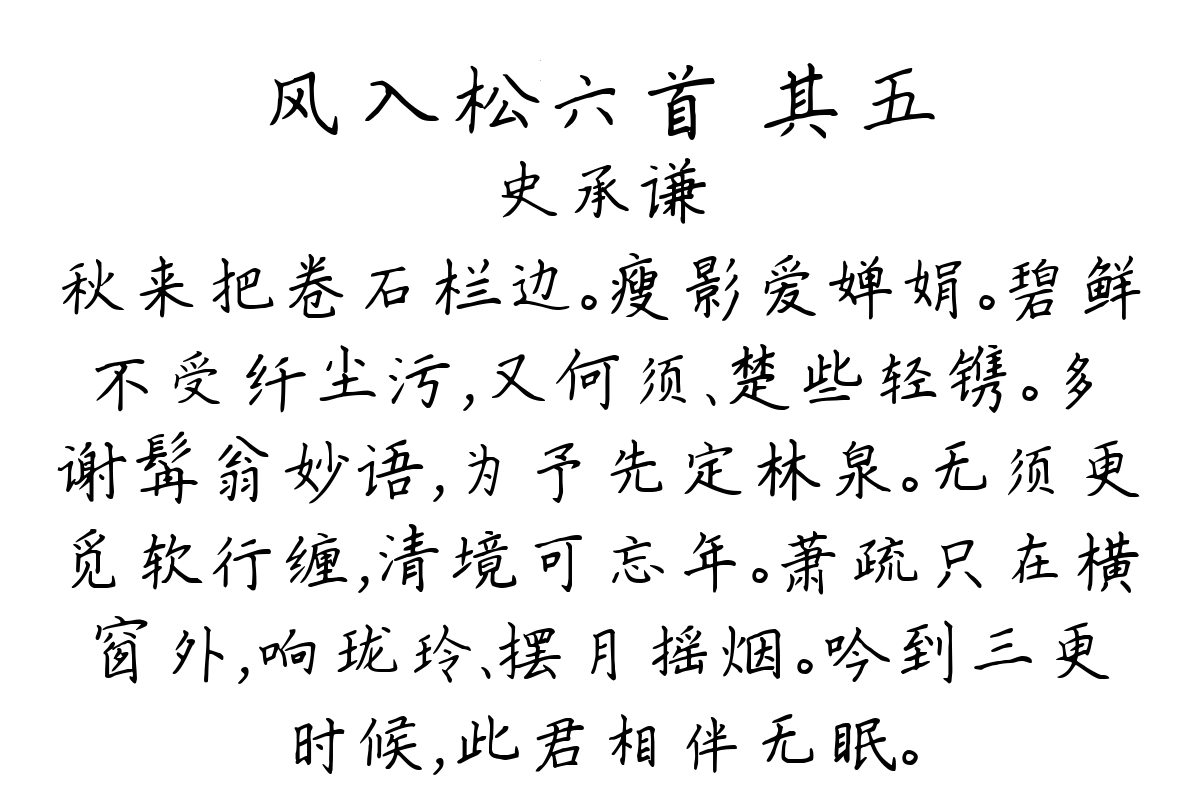 风入松六首 其五
史承谦
秋来把卷石栏边。瘦影爱婵娟。碧鲜
不受纤尘污,又何须、楚些轻镌。多
谢髯翁妙语,为予先定林泉。无须更
觅软行缠,清境可忘年。萧疏只在横
窗外,响珑玲、摆月摇烟。吟到三更
时候,此君相伴无眠。